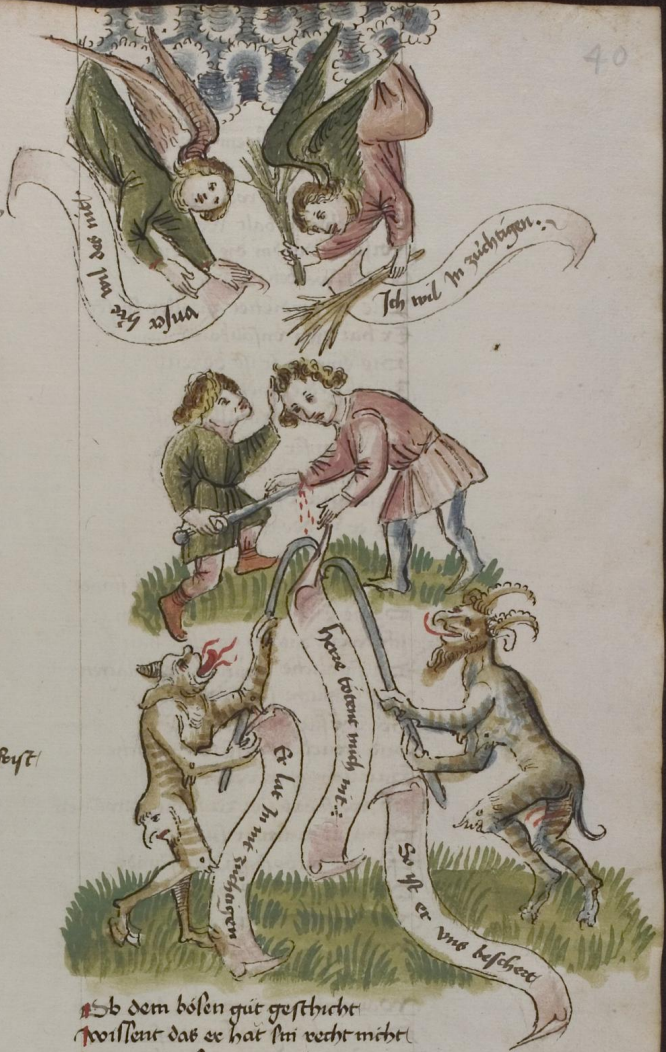 40
vnser hre wil des nit
Ich wil In züchtigen
herre tötent mich nit
Er lat In nit züchtigen
So ist er vns beschert
Ob dem bösen güt geschicht
wissent das er hat sin recht nicht